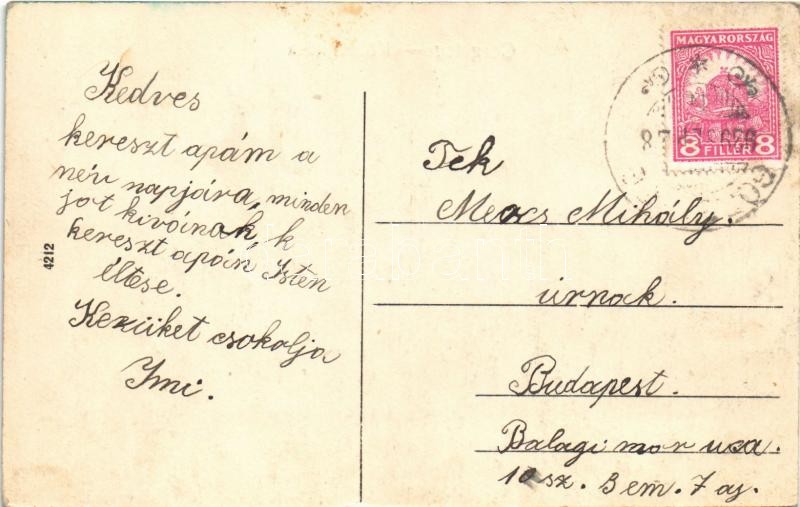 Kedves
kereszt apám a
név napjára, minden
jot kivóinak, k
kereszt apám Isten
éltese.
Kezüket csokolja
Imi.
4212
MAGYARORSZÁG
8 FILLÉR 8
Tek
Meocs Mihály.
úrnak.
Budapest.
Balagi mor uca.
10 sz. 3 em. 7 aj.